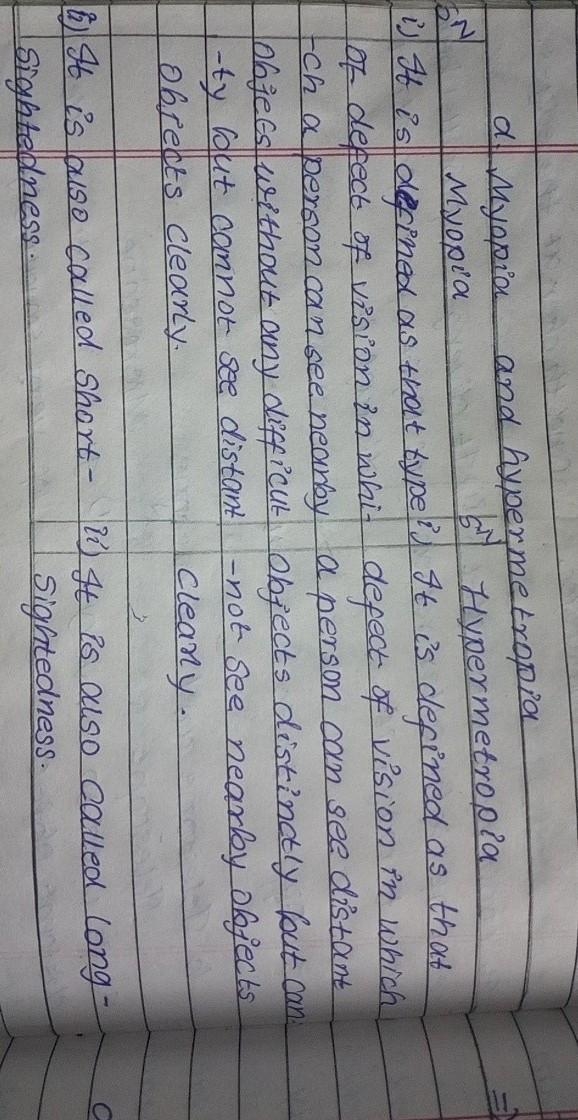 a. Myopia and hypermetropia
SN Myopia SN Hypermetropia
i) It is defined as that type i) It is defined as that
of defect of vision in whi- defect of vision in which
-ch a person can see nearby a person can see distant
objecs without any difficut objects distinctly but can
-ty but cannot see distant -not see nearby objects
objects clearly. clearly.
ii) It is also called short- ii) It is also called long-
sightedness. sightedness.